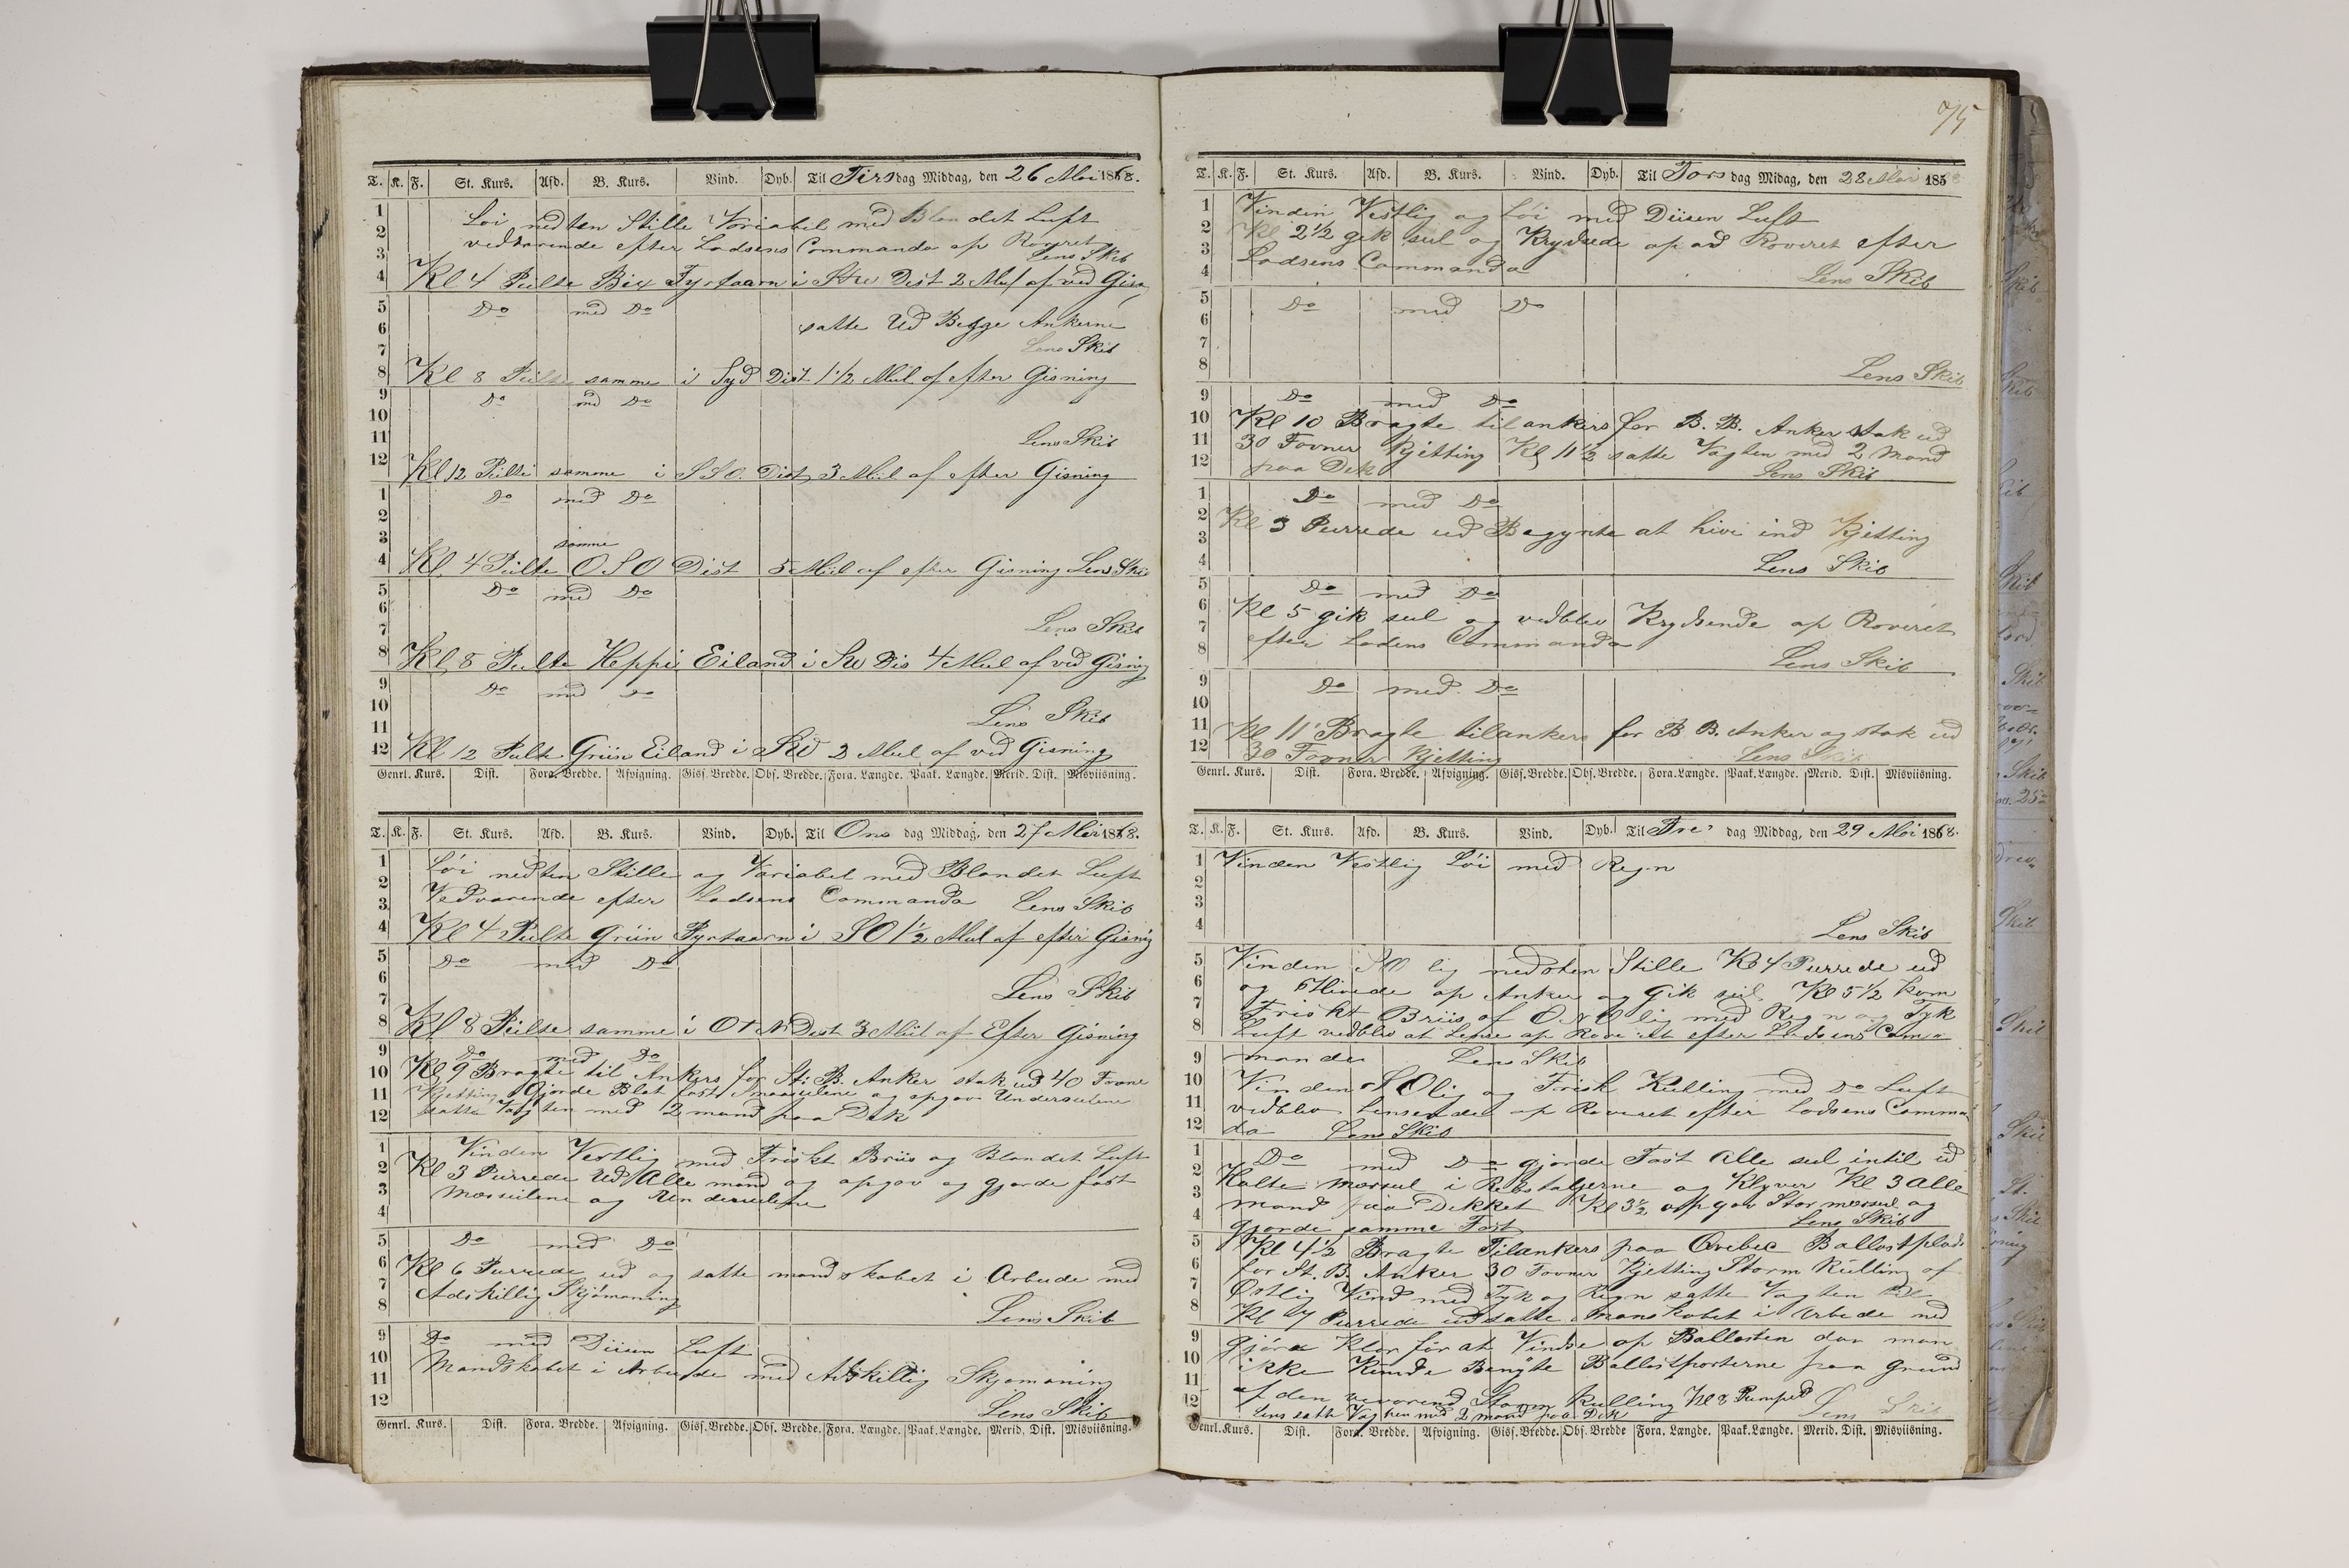 T. K. F. St. Kurs. Afd. B. Kurs. Vind. Dyb. Til Tirsdag Middag, den 26 Mai 1868.
1
2
3
4
Löi nedten Stille Variabel med Blandet Luft
vedvarende efter Lodsens Commando op Roveret
Lens Skib
Kl 4 Peilte Bix Fyrtaarn i Dist 2 Mul af ved Gisn
5
6
7
8
Do med Do
satte Ud Begge Ankerne
Lens Skib
Kl 8 Peilte samme i Syd Dist 1 1/2 Mul af efter Gisning
9
10
11
12
Do med Do
Lens Skib
Kl 12 Peilte samme i SSO. Dist 3 Mul af efter Gisning
1
2
3
4
Do med Do
samme
Kl. 4 Peilte OSO Dist 5 Mul af efter Gisning Lens Ski
5
6
7
8
Do med Do
Lens Skib
Kl 8 Peilte Heppi Eiland i SW Dis 4 Mul af ved Gisning
9
10
11
12
Do med Do
Lens Skib
Kl. 12 Peilte Grün Eiland i SW 2 Mul af ved Gisning
Genrl. Kurs. Dist. Fora. Bredde. Afvigning. Giss. Bredde. Obs. Bredde. Fora. Længde. Paak. Længde. Merid. Dist. Misviisning.
T. K. F. St. Kurs. Afd. B. Kurs. Vind. Dyb. Til Onsdag Middag, den 27 Mai 1868.
1
2
3
4
Löi nedten Stille og Variabel med Blandet Luft
Vedvarende efter Lodsens Commando Lens Skib
Kl 4 Peilte Grün Fyrtaarn i SO 1 1/2 Mul af efter Gisnig
5
6
7
8
Do med Do
Lens Skib
Kl 8 Peilte samme i OtN Dist 3 Mul af Efter Gisning
9
10
11
12
Do med Do
Kl 9 Bragte til Ankers for St: B. Anker stak ud 40 Favne
Kjetting Gjorde Blat fast Smaaseilene og opgav Underseilene
satte Vagten med 2 mand paa Dek
1
2
3
4
Vinden Vestlig med Friskt Briis og Blandet Luft
Kl 3 Purrede Ud Alle mand og opgav og gjorde fast
Mersseilene og Underseilene
5
6
7
8
Do med Do
Kl 6 Purrede ud og satte mandskabet i Arbeide med
Adskillig Skjömaning
Lens Skib
9
10
11
12
Do med Diisen Luft
Mandskabet i Arbeide med Adskillig Skjomaning
Lens Skib
Genrl. Kurs. Dist. Fora. Bredde. Afvigning. Giss. Bredde. Obs. Bredde. Fora. Længde. Paak. Længde. Merid. Dist. Misviisning.
T. K. F. St. Kurs. Afd. B. Kurs. Vind. Dyb. Til Torsdag Midag, den 28 Mai 1858
1
2
3
4
Vinden Vestlig og Löi med Diisen Luft
Kl 2 1/2 gik seil og Krydsede op ad Roveret efter
Lodsens Commando
Lens Skib
5
6
7
8
Do med Do
Lens Skib
9
10
11
12
Do med Do
Kl 10 Bragte til ankers for B. B. Anker stak ud
30 Favner Kjetting Kl 11 1/2 satte Vagten med 2 Mand
paa Dek Lens Skib
1
2
3
4
Do med Do
Kl 3 Purrede ud Begynte at hive ind Kjetting
Lens Skib
5
6
7
8
Do med Do
Kl 5 gik seil og vedblev Krydsende op Roveret
efter Lodens Commando
Lens Skib
9
10
11
12
Do med Do
Kl 11 Bragte tilankers for B B. Anker og stak ud
30 Favner Kjetting Lens Skib
Genrl. Kurs. Dist. Fora. Bredde. Afvigning. Giss. Bredde. Obs. Bredde. Fora. Længde. Paak. Længde. Merid. Dist. Misviisning.
T. K. F. St. Kurs. Afd. B. Kurs. Vind. Dyb. Til Fredag Middag, den 29 Mai 1868.
1
2
3
4
Vinden Vestlig Löi med Regn
Lens Skib
5
6
7
8
Vinden lig nedsten Stille Kl 4 Purrede ud
og Hivede op Anker og Gik seil. Kl 5 1/2 kom
Friskt Briis af lig med Regn og Tyk
Luft vedblev at Lense op Roveret efter Lodsens Comm
9
10
11
12
mando Lens Skib
Vinden SOlig og Frisk Kulling med Do Luft
vedblev Lensende op Roveret efter Lodsens Comman
do Lens Skib
1
2
3
4
Do med Do gjorde Fast Alle seil intil ud
Holte mersseil i Rebstaljerne og Klyver Kl 3 Alle
mand paa Dekket Kl 3 1/2 opgav Stor mersseil og
gjorde samme Fast Lens Skib
5
6
7
8
Kl 4 1/2 Bragte Tilankers paa Qvebec Ballastplads
for St. B. Anker 30 Favner Kjetting Storm Kulling af
Östlig Vind med Tyk og Regn satte Vagten
Kl 7 Purrede ud satte Manskabet i Arbeide med
9
10
11
12
gjöre Klar for at Vinde op Ballasten da man
ikke Kunde Benyte Ballastporterne paa Grund
af den værende Storm Kulling Kl 8 Pumped
Lens satte Vagten med 2 mand paa Dek Lens Skib
Genrl. Kurs. Dist. Fora. Bredde. Afvigning. Giss. Bredde. Obs. Bredde Fora. Længde. Paak. Længde. Merid. Dist. Misviisning.